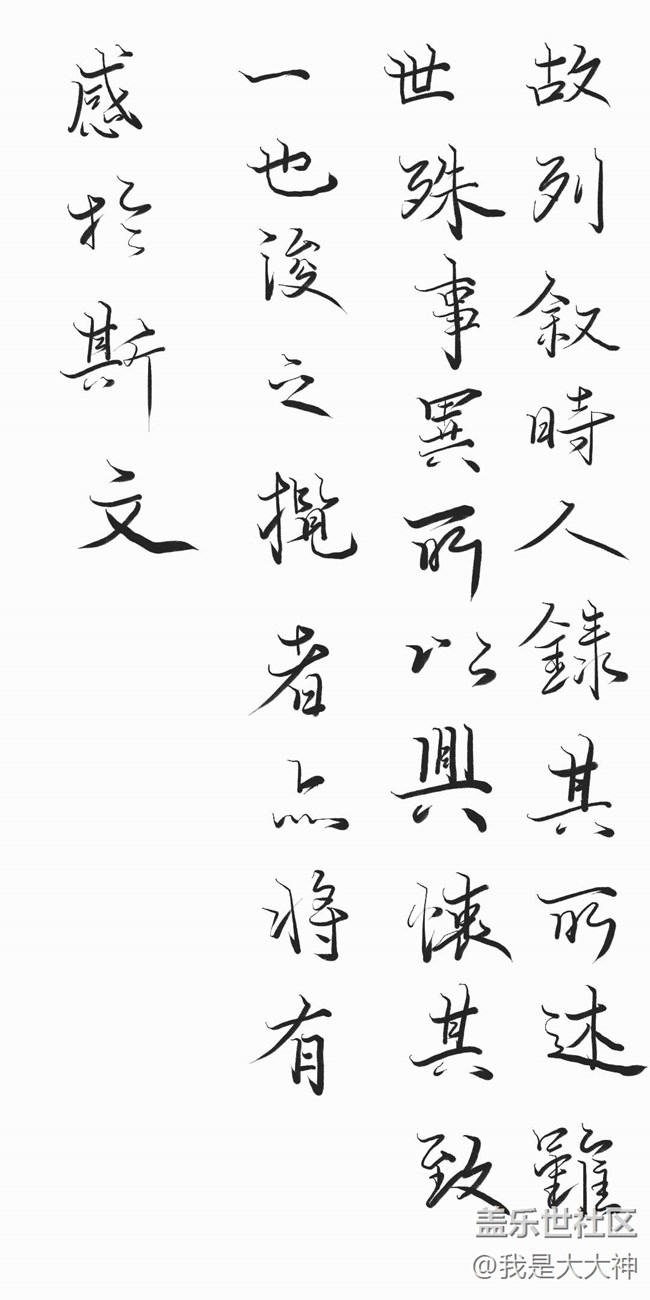 故列叙時人錄其所述雖
世殊事異所以興懷其致
一也後之攬者亦將有
感於斯文
盖乐世社区
@我是大大神